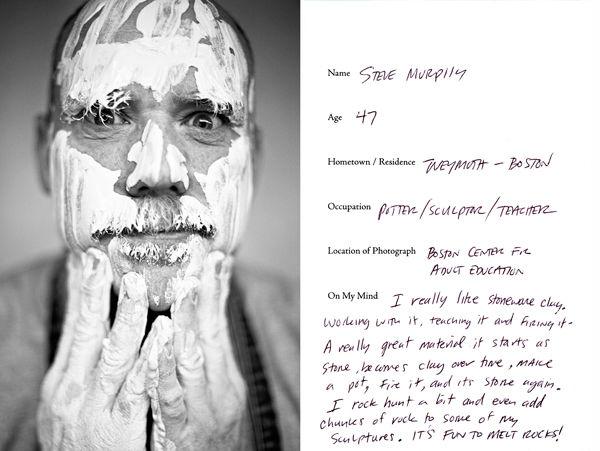 Name Steve Murphy
Age 47
Hometown / Residence Weymouth - Boston
Occupation Potter/Sculptor/Teacher
Location of Photograph Boston Center For
Adult Education
On My Mind I really like stoneware clay.
Working with it, teaching it and firing it.
A really great material it starts as
stone, becomes clay over time, make
a pot, fire it, and its stone again.
I rock hunt a bit and even add
chunks of rock to some of my
sculptures. IT'S FUN TO MELT ROCKS!